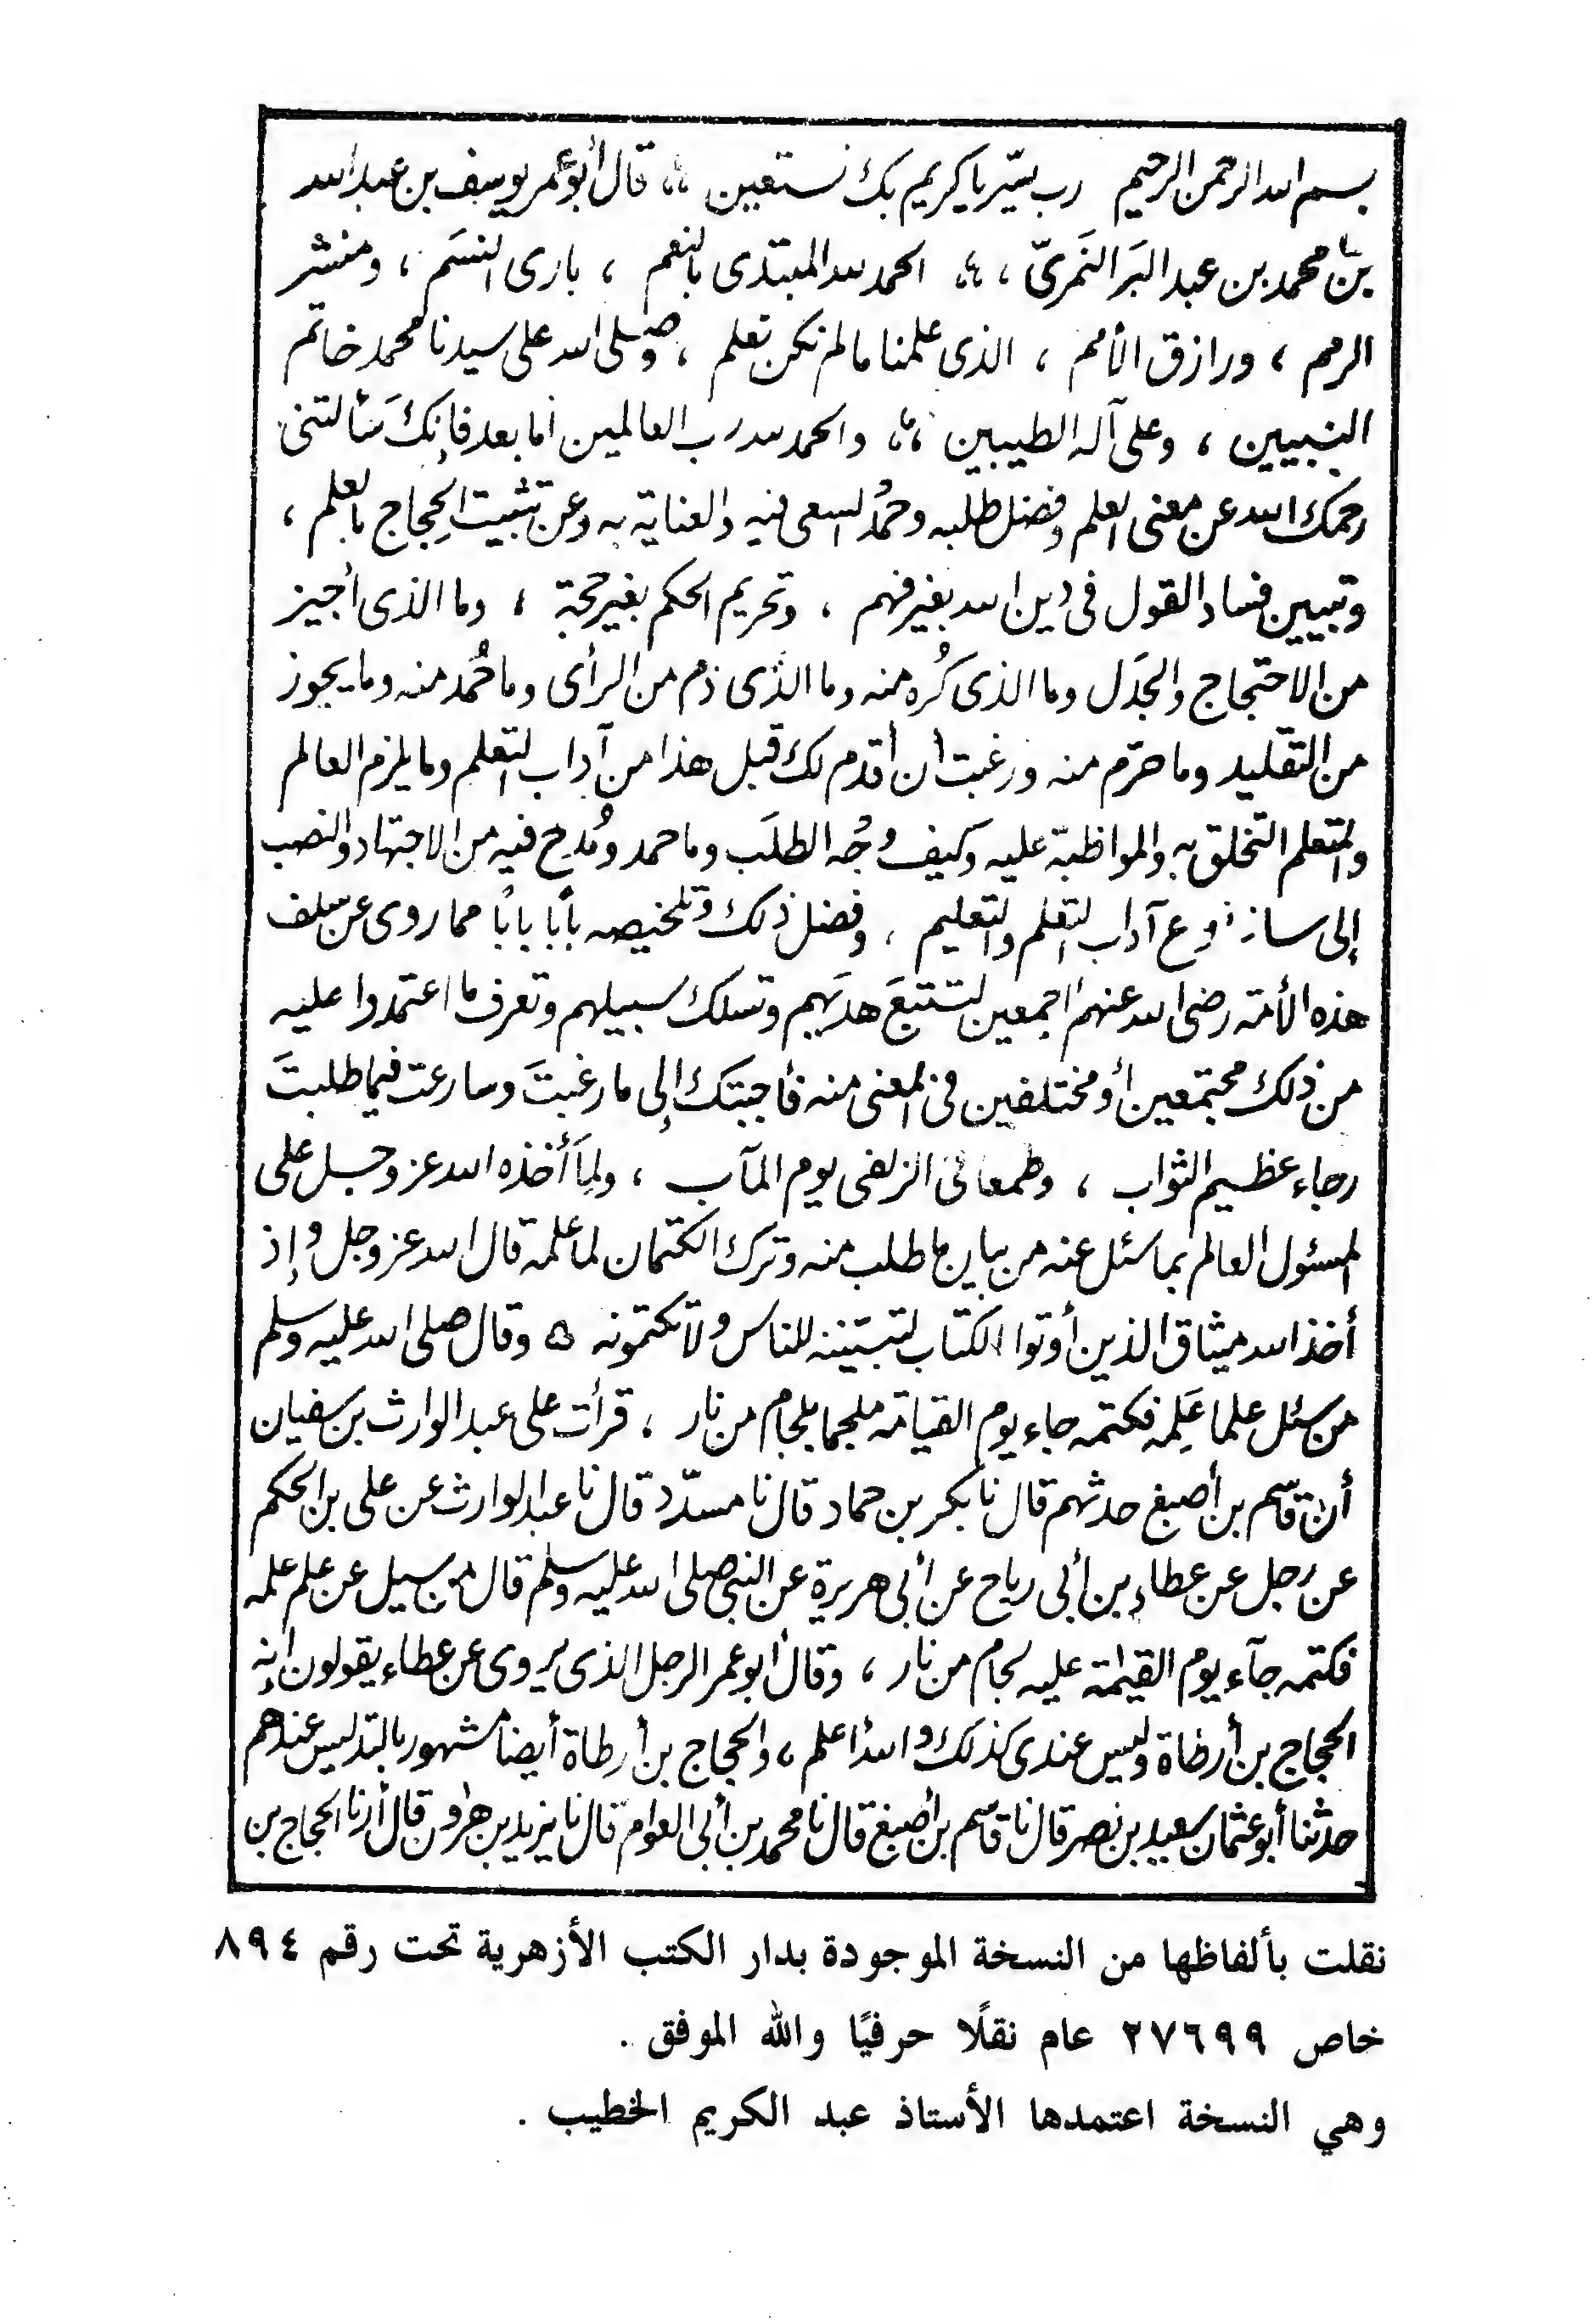 بسم الله الرحمن الرحيم رب يسّر يا كريم بك نستعين ،، قال أبو عمر يوسف بن عبد الله
بن محمد بن عبد البَر النَمَريّ ، ،، الحمد لله المبتدى بالنعم ، بارى النسَم ، ومنشر
الرمم ، ورازق الأمم ، الذى علمنا مالم نكن نعلم ، وصلى الله على سيدنا محمد خاتم
النبيين ، وعلى آله الطيبين ،، والحمد لله رب العالمين أما بعد فإنكَ سألتنى
رحمك الله عن معنى العلم وفضل طلبه وحمْد السعى فيه والعناية به وعن تثبيت الحِجاج بالعلم ،
وتبيين فساد القول فى دين الله بغير فهم ، وتحريم الحكم بغير حجة ، وما الذى أجيز
من الاحتجاج والجدَل وما الذى كُره منه وما الذى ذم من الرأى وما حُمد منه وما يجوز
من التقليد وما حرّم منه ورغبت أن أقدم لك قبل هذا من آداب التعلم وما يلزم العالم
والمتعلم التخلق به والمواظبة عليه وكيف وجْه الطلَب وما حمد ومُدح فيه من الاجتهاد والنصب
إلى سائر أنوع آداب التعلم والتعليم ، وفضل ذلك وتلخيصه بابًا بابًا مما روى عن سلف
هذه الأمة رضى الله عنهم أجمعين لتتبعَ هديَهم وتسلك سبيلهم وتعرف ما اعتمدوا عليه
من ذلك مجتمعين أو مختلفين فى المعنى منه فأجبتك إلى ما رغبتَ وسارعت فيما طلبتَ
رجاء عظيم الثواب ، وطمعا فى الزلفى يوم المآب ، ولِمَا أخذه الله عز وجل على
المسئول العالم بما سئل عنه من بيان ما طلب منه وترك الكتمان لما علمه قال الله عز وجل وإذ
أخذ الله ميثاق الذين أوتوا الكتاب لتبيّننه للناس ولا تكتمونه ه وقال صلى الله عليه وسلم
من سئل علما عَلِمه فكتمه جاء يوم القيامة ملجما بلجام من نار ، قرأت على عبد الوارث بن سفيان
أن قاسم بن أصبغ حدثهم قال نا بكر بن حماد قال نا مسدّد قال نا عبد الوارث عن على بن الحكم
عن رجل عن عطاء بن أبى رباح عن أبى هريرة عن النبى صلى الله عليه وسلم قال من سيل عن علم علمه
فكتمه جآء يوم القيٰمة عليه لجام من نار ، وقال أبو عمر الرجل الذى يروى عن عطاء يقولون إنه
الحجاج بن أرطاة وليس عندى كذلك والله أعلم ، والحجاج بن أرطاة أيضا مشهور بالتدليس عندهم
حدثنا أبو عثمان سعيد بن نصر قال نا قاسم بن أصبغ قال نا محمد بن أبى العوام قال نا يزيد بن هٰرون قال أرنا الحجاج بن
نقلت بألفاظها من النسخة الموجودة بدار الكتب الأزهرية تحت رقم ٨٩٤
خاص ٢٧٦٩٩ عام نقلًا حرفيًا والله الموفق .
وهي النسخة اعتمدها الأستاذ عبد الكريم الخطيب .